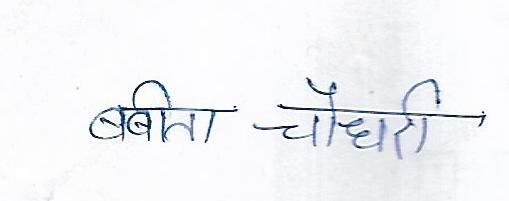 बबीता चौधरी